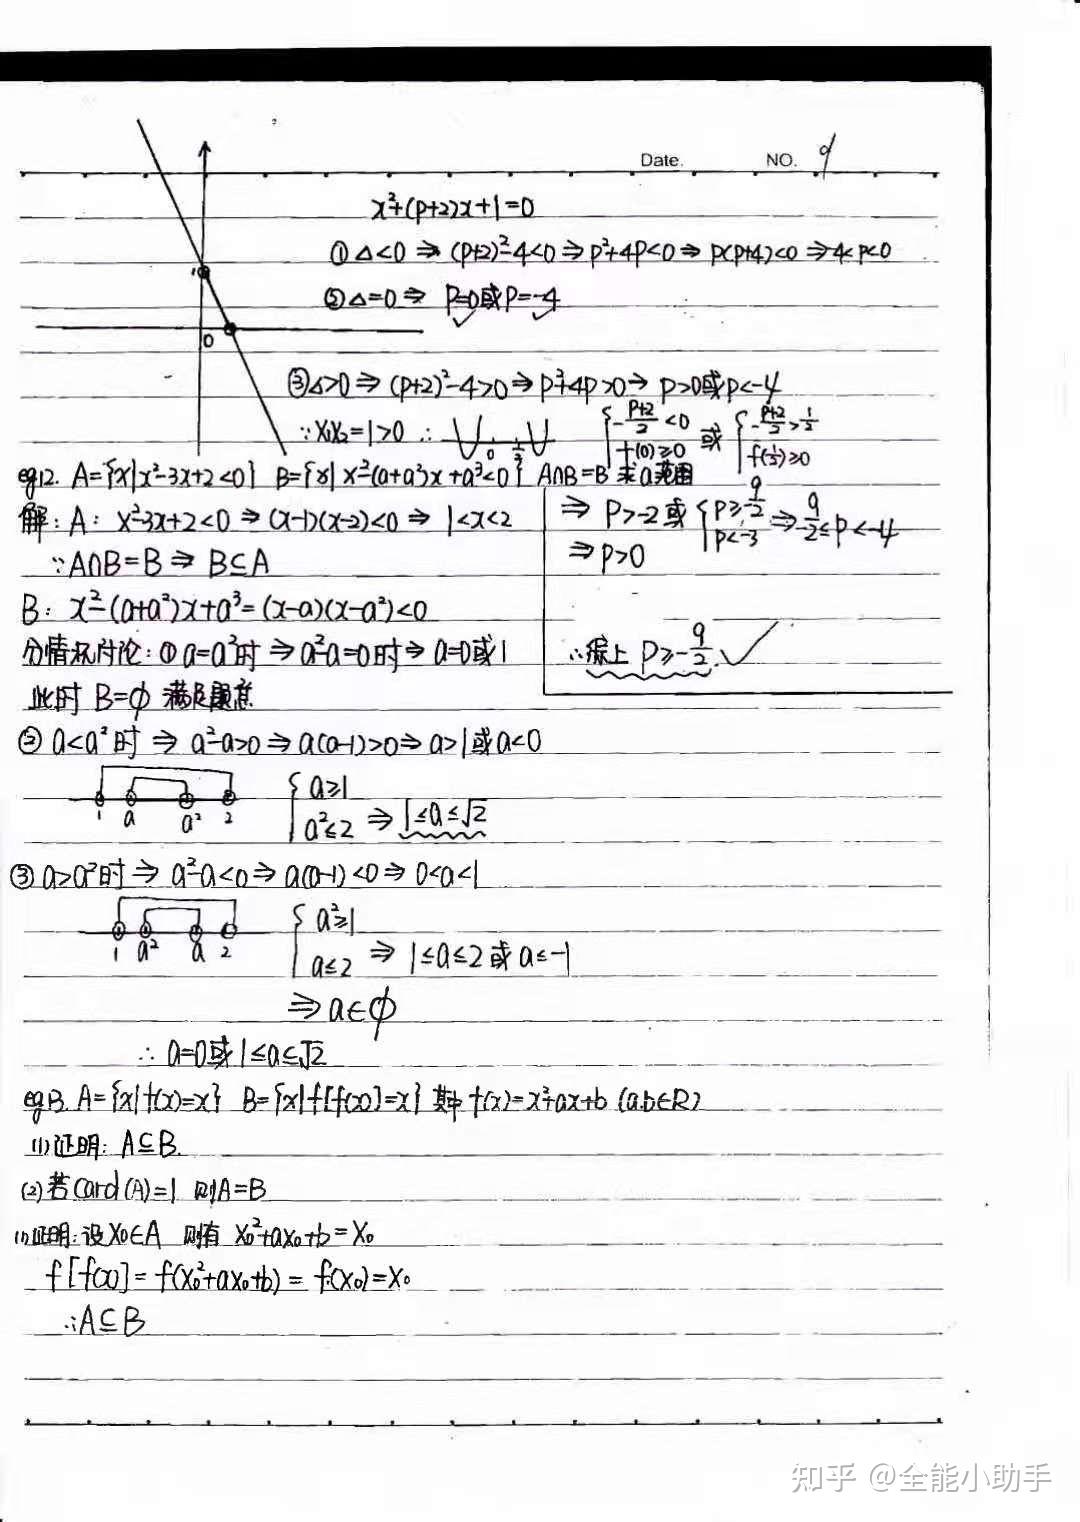 Date. NO. 9
x²+(p+2)x+1=0
①△<0 ⇒ (p+2)²-4<0 ⇒ p²+4p<0 ⇒ p(p+4)<0 ⇒ -4<p<0
②△=0 ⇒ p=0或p=-4
1
0
③△>0 ⇒ (p+2)²-4>0 ⇒ p²+4p>0 ⇒ p>0或p<-4
∵x₁x₂=1>0 ∴ 0 1/2 { -(p+2)/2<0 f(0)≥0 或 { -(p+2)/2>1/2 f(1/2)≥0
⇒ p>-2 或 { p≥-9/2 p<-3 ⇒ -9/2≤p<-4
⇒ p>0
∴综上 p≥-9/2
eg12. A={x|x²-3x+2<0} B={x|x²-(a+a²)x+a³<0} A∩B=B 求a范围
解: A: x²-3x+2<0 ⇒ (x-1)(x-2)<0 ⇒ 1<x<2
∵A∩B=B ⇒ B⊆A
B: x²-(a+a²)x+a³=(x-a)(x-a²)<0
分情况讨论: ①a=a²时 ⇒ a²-a=0时 ⇒ a=0或1
此时 B=∅ 满足题意
②a<a²时 ⇒ a²-a>0 ⇒ a(a-1)>0 ⇒ a>1或a<0
1 a a² 2 { a≥1 a²≤2 ⇒ 1≤a≤√2
③a>a²时 ⇒ a²-a<0 ⇒ a(a-1)<0 ⇒ 0<a<1
1 a² a 2 { a²≥1 a≤2 ⇒ 1≤a≤2或a≤-1
⇒ a∈∅
∴ a=0或1≤a≤√2
eg13. A={x|f(x)=x} B={x|f[f(x)]=x} 其中 f(x)=x²+ax+b (a.b∈R)
(1)证明: A⊆B.
(2)若card(A)=1 则A=B
(1)证明: 设x₀∈A 则有 x₀²+ax₀+b=x₀
f[f(x)]=f(x₀²+ax₀+b)=f(x₀)=x₀
∴A⊆B
知乎 @全能小助手